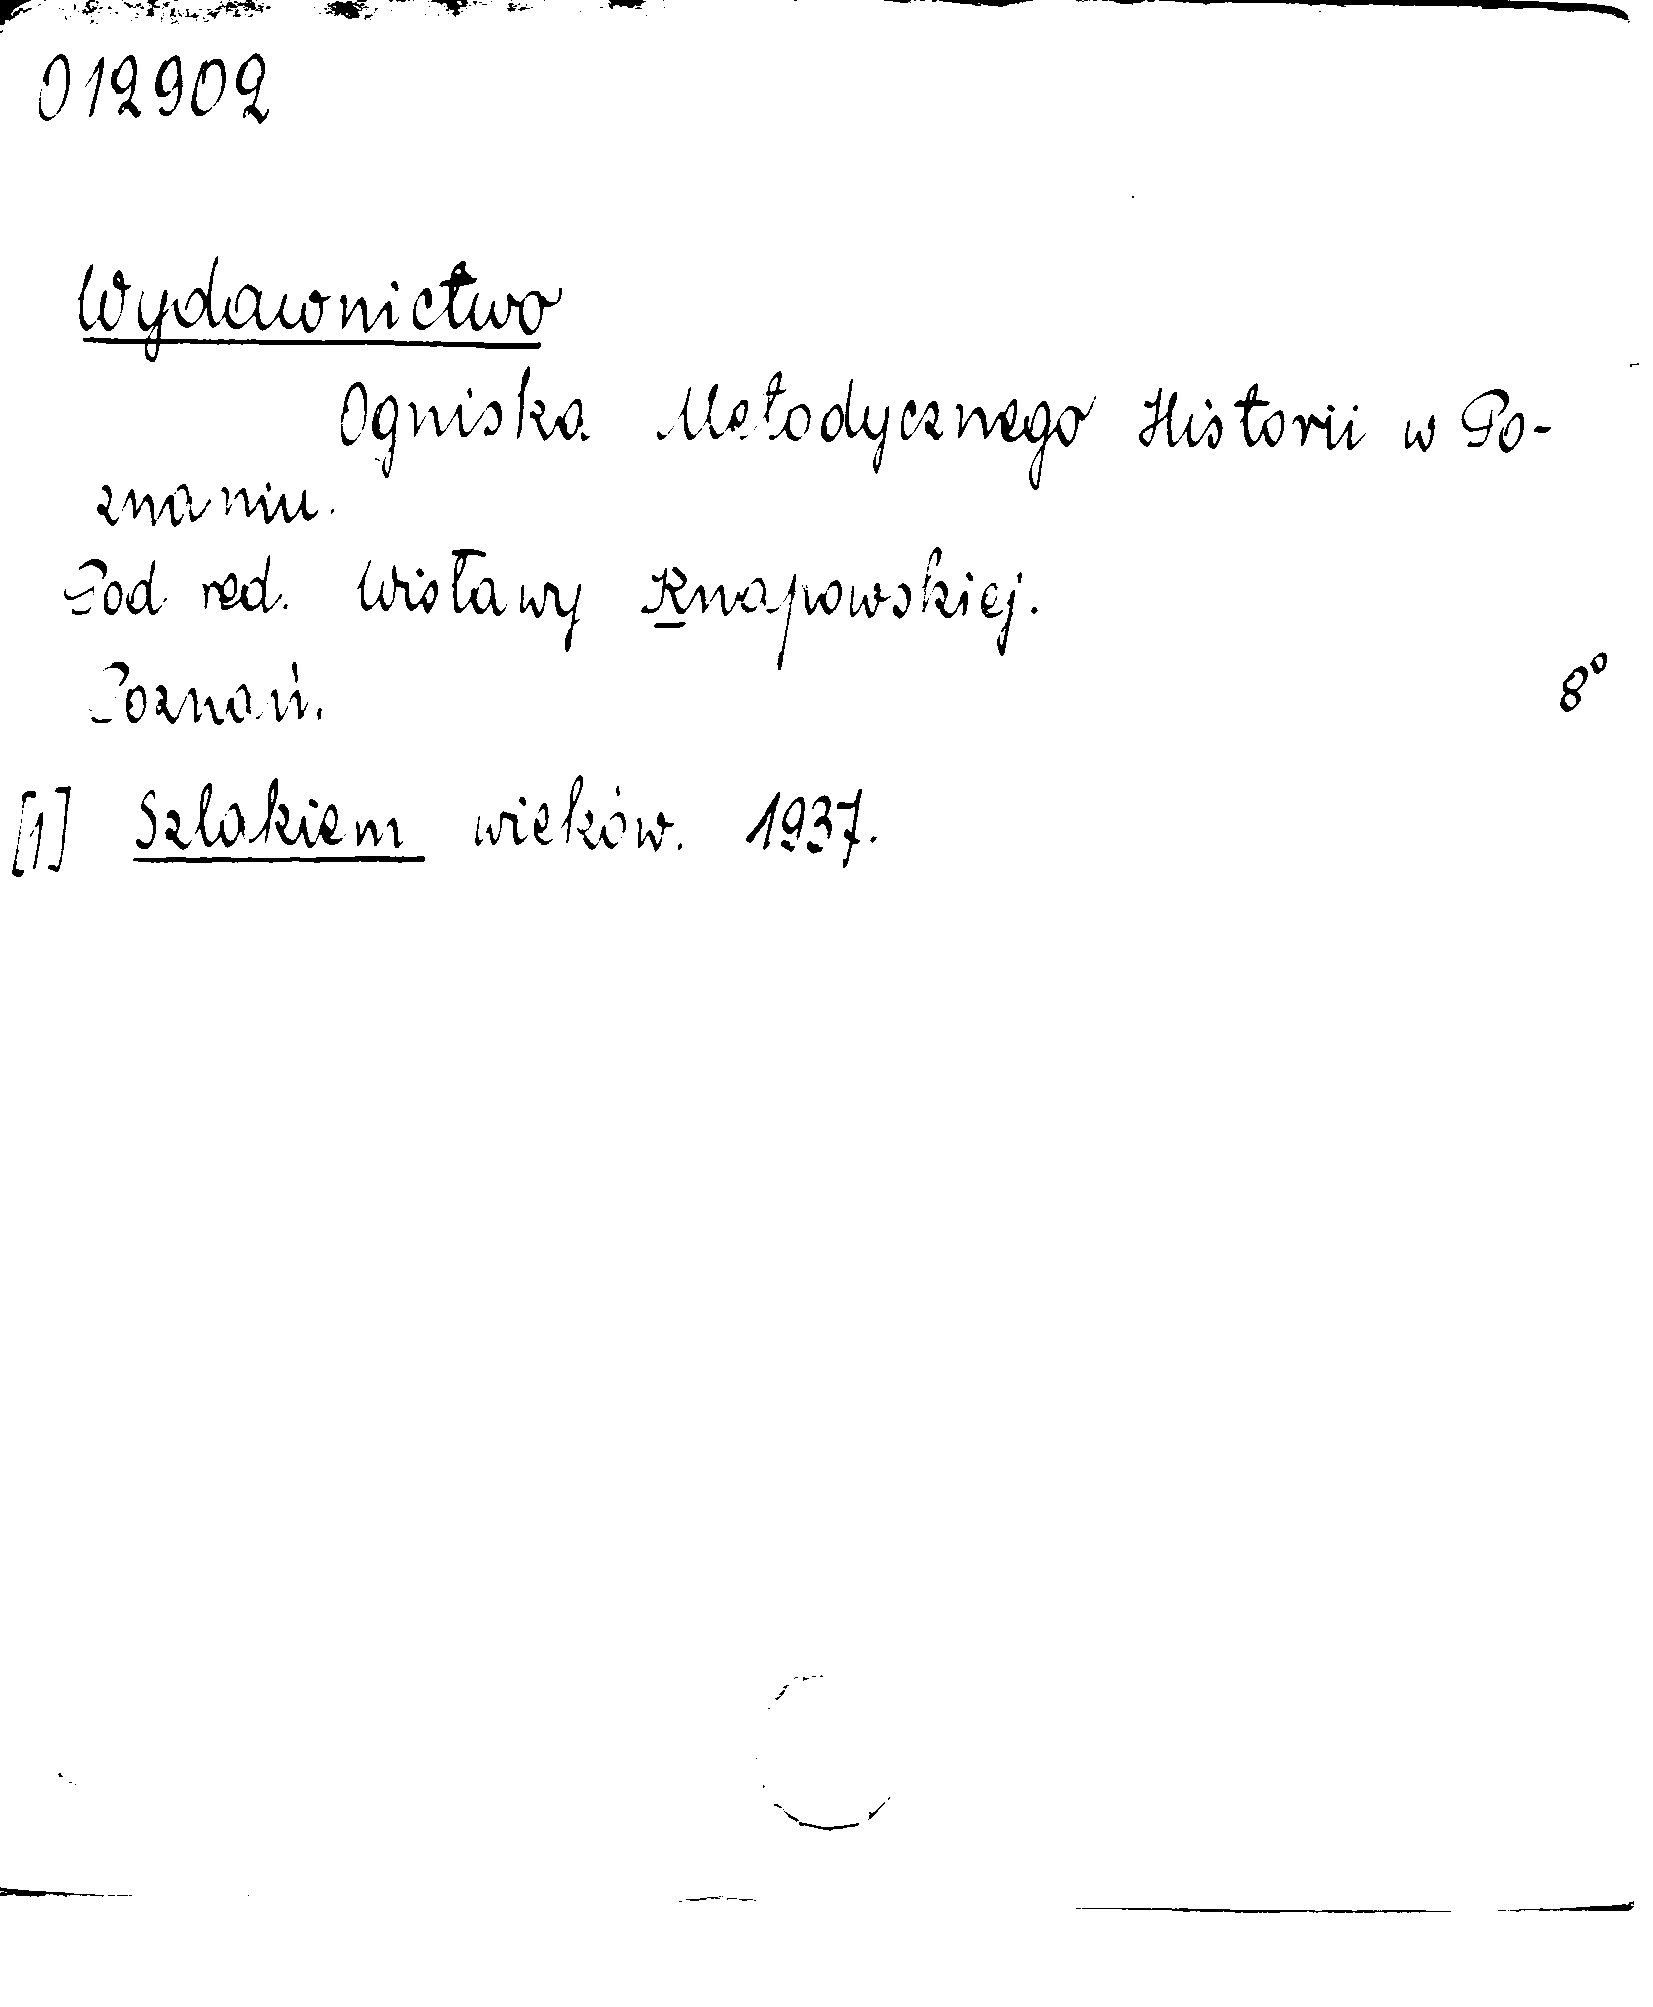 012902
Wydawnictwo
Ogniska Metodycznego Historii w Po-
znaniu.
Pod red. Wisławy Knapowskiej.
Poznań. 8°
[1] Szlakiem wieków. 1937.